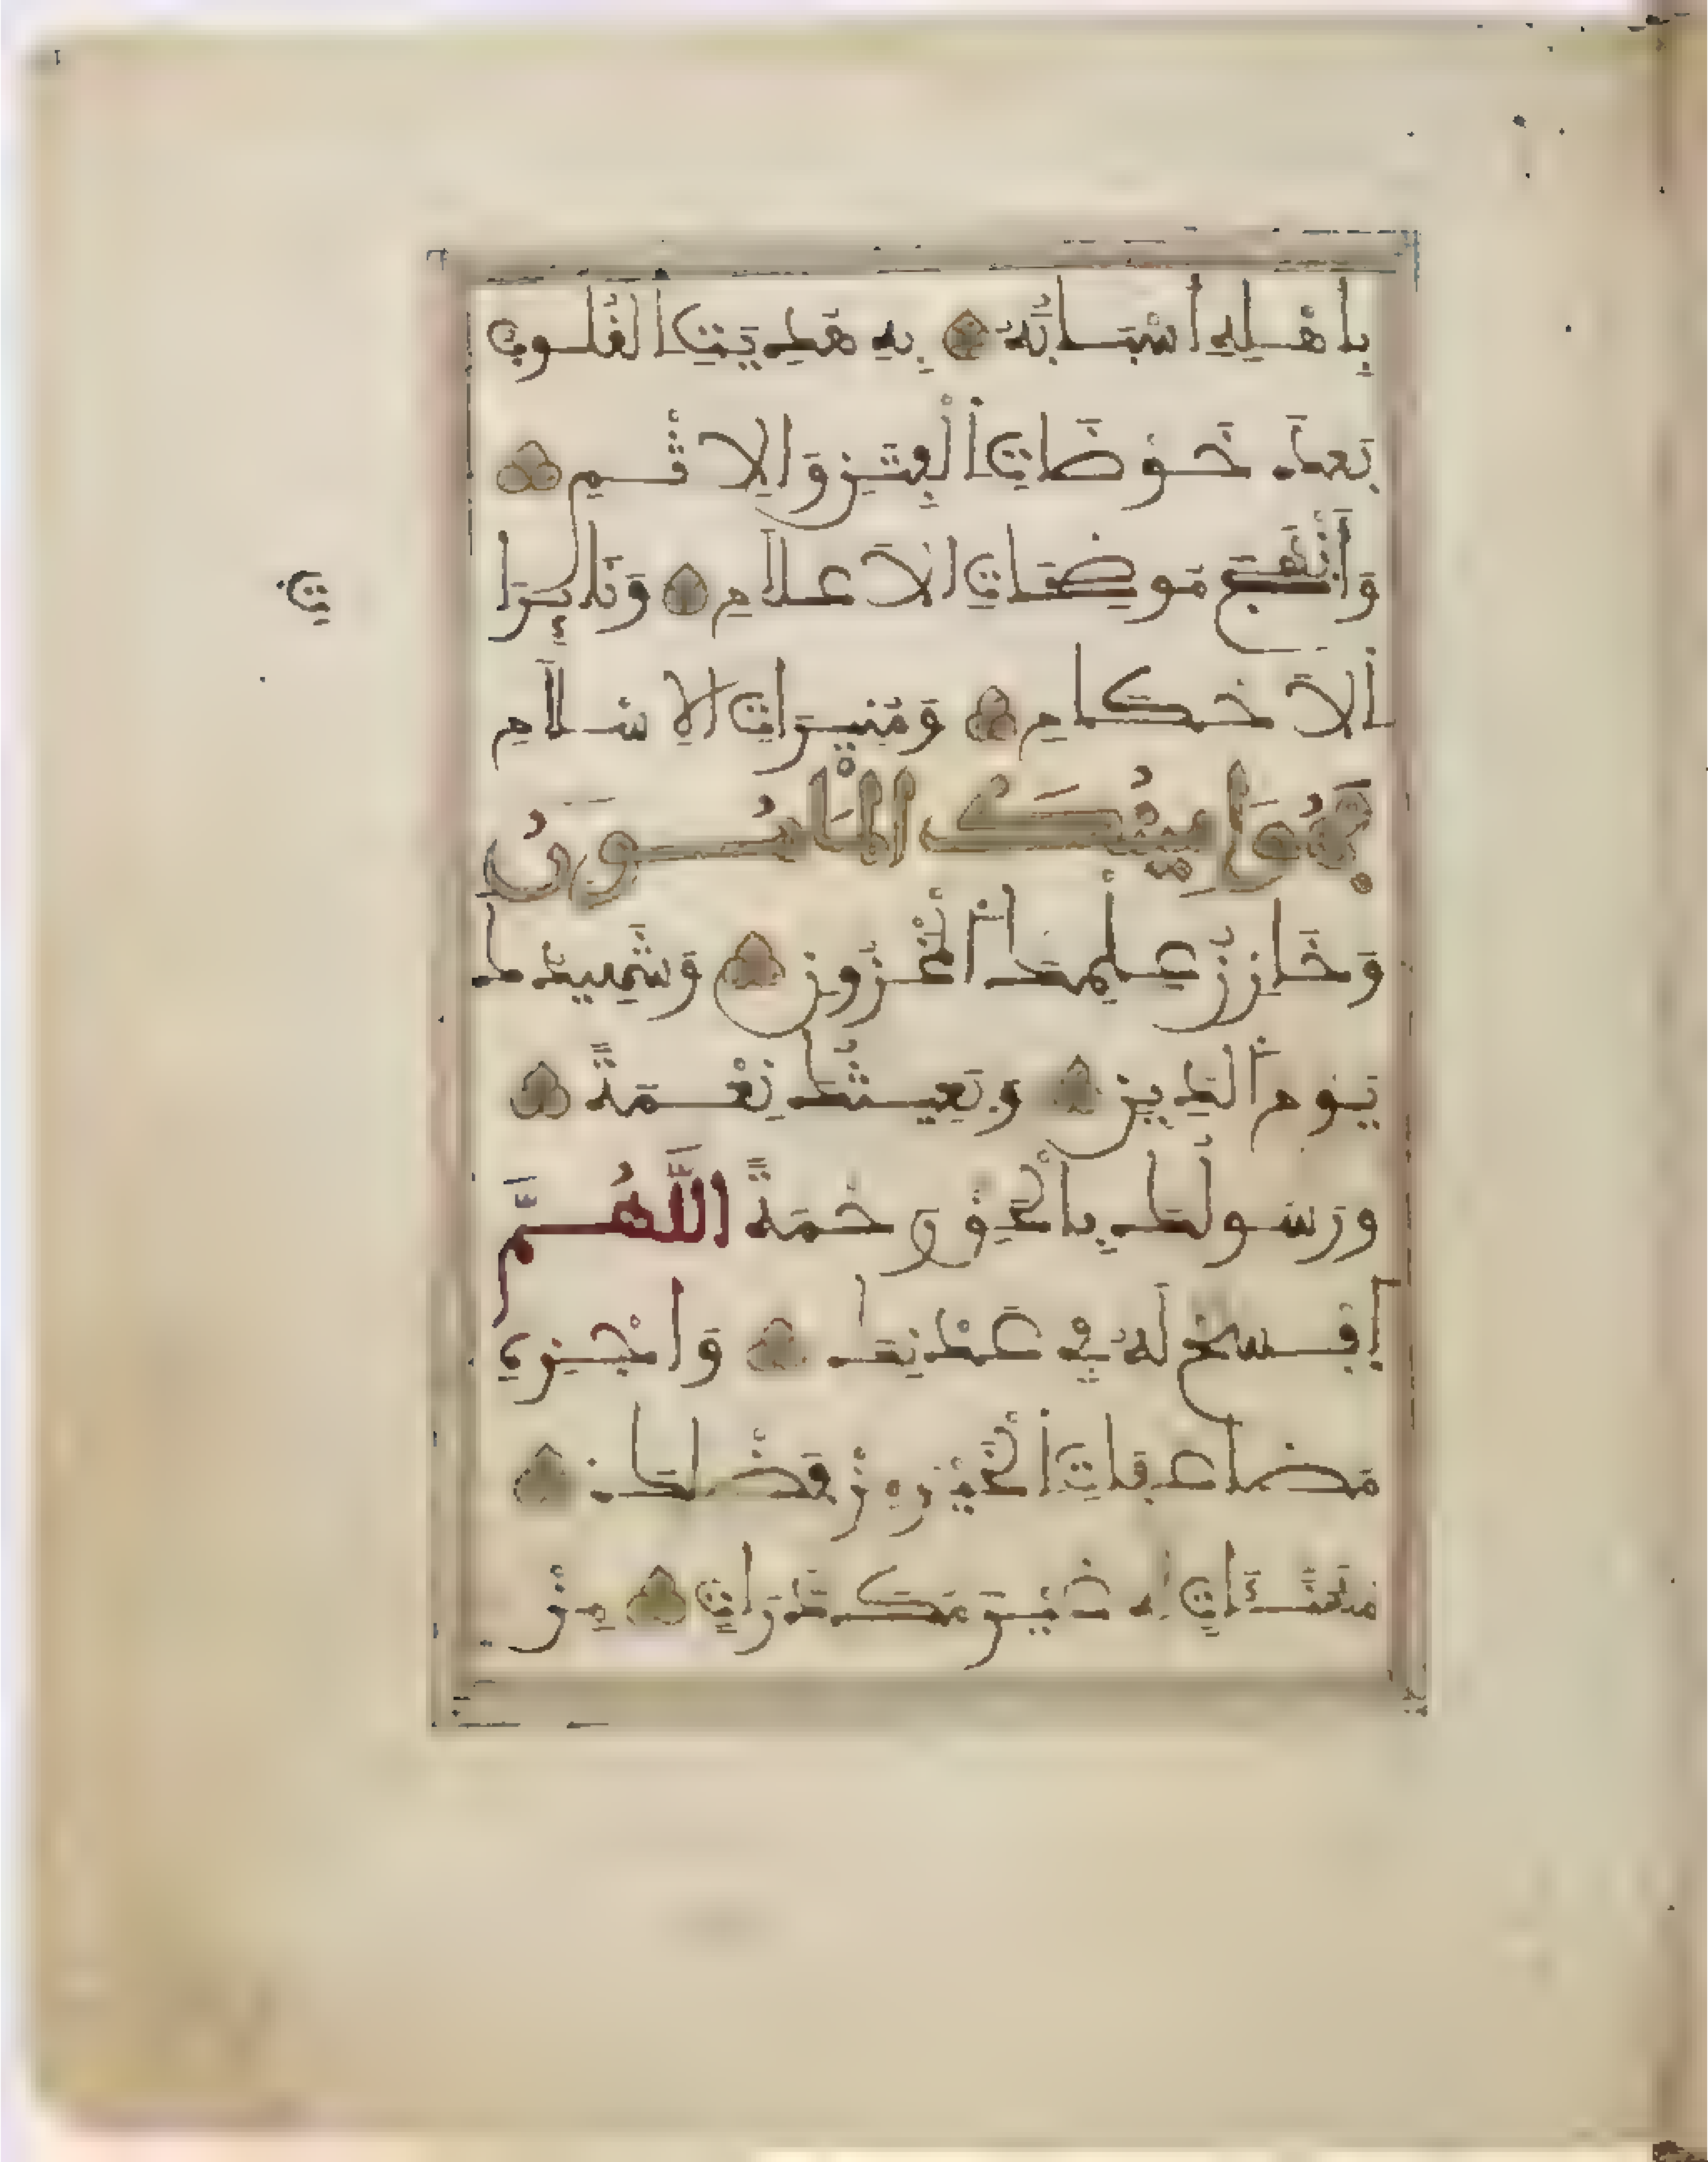 بِأَهْلِهِ أَسْبَابَهُ بِهِ هُدِيَتِ الْقُلُوبُ
بَعْدَ خَوْضَاتِ الْفِتَنِ وَالْإِثْمِ
وَأَنْهَجَ مُوضِحَاتِ الْأَعْلَامِ وَنَائِرَاتِ
الْأَحْكَامِ وَمُنِيرَاتِ الْإِسْلَامِ
فَهُوَ أَمِينُكَ الْمَأْمُونُ
وَخَازِنُ عِلْمِكَ الْمَخْزُونِ وَشَهِيدُكَ
يَوْمَ الدِّينِ وَبَعِيثُكَ نِعْمَةً
وَرَسُولُكَ بِالْحَقِّ رَحْمَةً اللَّهُمَّ
افْسَحْ لَهُ فِي عَدْنِكَ وَاجْزِهِ
مُضَاعَفَاتِ الْخَيْرِ مِنْ فَضْلِكَ
مُهَنَّئَاتٍ لَهُ غَيْرَ مُكَدَّرَاتٍ مِنْ